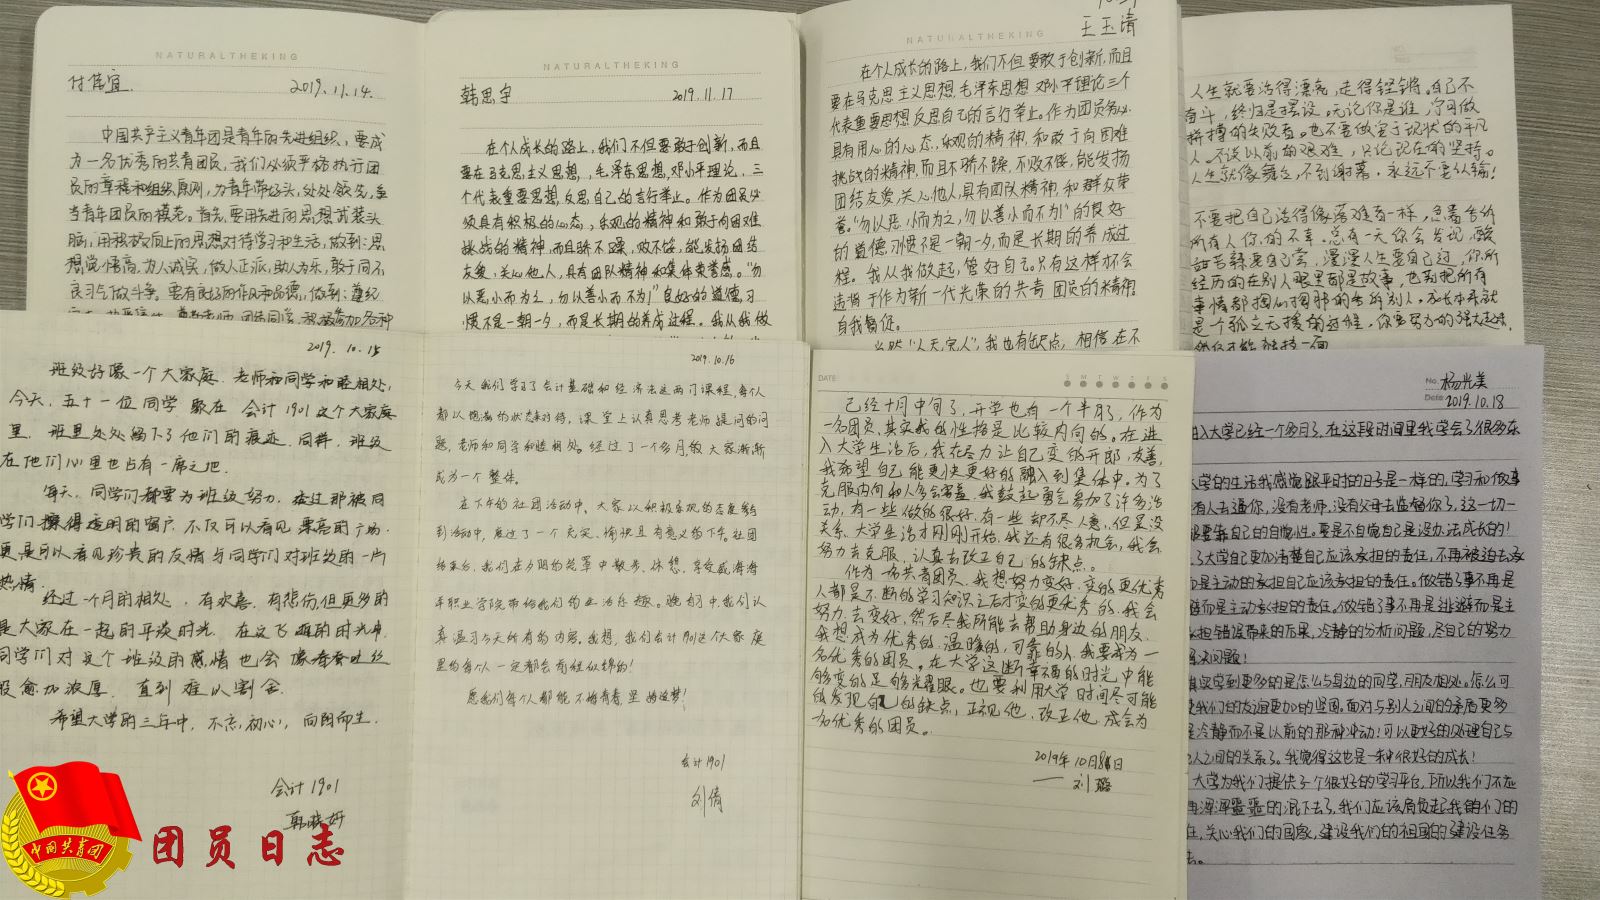 NATURALTHEKING
付倩宜
2019.11.14.
中国共产主义青年团是青年的先进组织、要成
为一名优秀的共青团员,我们必须严格执行团
员的章程和组织原则,为青年带好头,处处领先,争
当青年团员的模范。首先,要用先进的思想武装头
脑,用积极向上的思想对待学习和生活,做到:思
想觉悟高,为人诚实,做人正派,助人为乐,敢于同不
良习气做斗争。要有良好的作风和品德,做到:遵纪
NATURALTHEKING
韩思宇
2019.11.17
在个人成长的路上,我们不但要敢于创新,而且
要在马克思主义思想,毛泽东思想,邓小平理论,三
个代表重要思想,反思自己的言行举止。作为团员必
须具有积极的心态,乐观的精神和敢于向困难
挑战的精神,而且骄不躁,败不馁,能发扬团结
友爱,关心他人,具有团队精神和集体荣誉感。“勿
以恶小而为之,勿以善小而不为”良好的道德,习
惯不是一朝一夕,而是长期的养成过程。我从我做
NATURALTHEKING
王玉清
在个人成长的路上,我们不但要敢于创新,而且
要在马克思主义思想,毛泽东思想邓小平理论三个
代表重要思想反思自己的言行举止。作为团员务必
具有用心的心态,乐观的精神,和敢于向困难
挑战的精神而且不骄不躁,不败不馁,能发扬
团结友爱,关心他人具有团队精神,和群众荣
誉。“勿以恶小而为之,勿以善小而不为”的良好
的道德习惯不是一朝一夕,而是长期的养成过
程。我从我做起,管好自己。只有这样才不会
违背于作为新一代光荣的共青团员的精神。
自我督促。
当然“人无完人”,我也有缺点,相信在不
人生就要活得漂亮,走得铿锵。自己不
奋斗,终归是摆设。无论你是谁,宁可做
拼搏的失败者。也不要做安于现状的平凡
人。不谈以前的艰难,只论现在的坚持。
人生就像舞台,不到谢幕,永远不要认输!
不要把自己活得像落难者一样,急着告的
所有人你的不幸。总有一天你会发现,酸
甜苦辣要自己尝,漫漫人生要自己过,你所
经历的在别人眼里都是故事,也别把所有
事情都掏心掏肺的告诉别人。成长本来就
是个孤立无援的过程,你要努力的强大起来,
2019.10.15
班级好像一个大家庭.老师和同学和睦相处,
今天,五十一位同学聚在会计1901这个大家庭
里.班里处处留下了他们的痕迹.同样,班级
在他们心里也占有一席之地.
每天,同学们都要为班级努力.透过那被同
学们擦得透明的窗户.不仅可以看见漂亮的广场.
更是可以看见珍贵的友情与同学们对班级的一片
热情.
经过一个月的相处,有欢喜.有悲伤但更多的
是大家在一起的平淡时光.在这飞逝的时光中.
同学们对这个班级的感情也会像春蚕吐丝
般愈加浓厚.直到难以割舍.
希望大学的三年中,不忘初心,向阳而生.
会计1901
2019.10.16
今天我们学习了会计基础和经济法这两门课程,每人
都以饱满的状态来对待,课堂上认真思考老师提问的问
题,老师和同学和睦相处。经过了一个多月的大家渐渐
成为一个整体。
在下午的社团活动中,大家以积极乐观的态度参与
到活动中,度过了一个充实、愉快且有意义的下午。社团
结束后,我们在夕阳的笼罩中散步、休想,享受威海海
年职业学院带给我们的生活乐趣。晚自习中,我们认
真温习今天所有的内容。我想,我们会计1901这个大家庭
里的每个人一定都会有程似锦的!
愿我们每个人都能不悔青春,坚的追梦!
会计1901
刘倩
DATE:
S M T W T F S
已经十月中旬了,开学也有一个半月了,作为
一名团员,其实我的性格是比较内向的。在进
入大学生活后,我在尽力让自己变的开郎,友善,
我希望自己能更快更好的融入到集体中。为了
克服内向和人多会害羞,我鼓起勇气参加了许多活
动,有一些做的很好,有一些却不尽人意,但是没
关系,大学生活才刚刚开始,我还有很多机会,我会
努力去克服,认真去改正自己的缺点。
作为一名共青团员,我想努力变好,变的更优秀
人都是不断的学习知识之后才变的更优秀的,我会
努力去变好,然后尽我所能去帮助身边的朋友,
我想成为优秀的,温暖的,可靠的人,我要成为一
名优秀的团员。在大学这断幸福的时光中能
够变的足够光耀眼。也要利用大学时间尽可能
的发现自己的缺点,正视他,改正他,成会为
名优秀的团员。
2019年10月
一 刘
No. 杨光美
Date: 2019.10.18
入大学已经一个多月了,在这段时间里我学会了很多东
学的生活我感觉跟平时的日子是一样的,学习和做事
有人去逼你,没有老师,没有父母去监督你了,这一切一
要靠自己的自觉性。要是不自觉自己是没办法成长的!
了大学自己更加清楚自己应该承担的责任,不再被迫去承
是主动的承担自己应该承担的责任。做错了事不再是
避而是主动承担的责任。做错了事不再是逃避而是主
担错误带来的后果,冷静的分析问题,尽自己的努力
决问题!
实学到更多的是怎么与身边的同学,朋友相处。怎么可
我们的友谊更加的坚固,面对与别人之间的矛盾更多
是冷静而不是以前的那种冲动!可以更好的处理自己与
人之间的关系了。我觉得这也是一种很好的成长!
大学为我们提供了个很好的学习平台,所以我们不应
浑浑噩噩的混下去了,我们应该肩负起我的们的
任,关心我们的国家,建设我们的祖国的建设任务
去。
中国共青团
团员日志